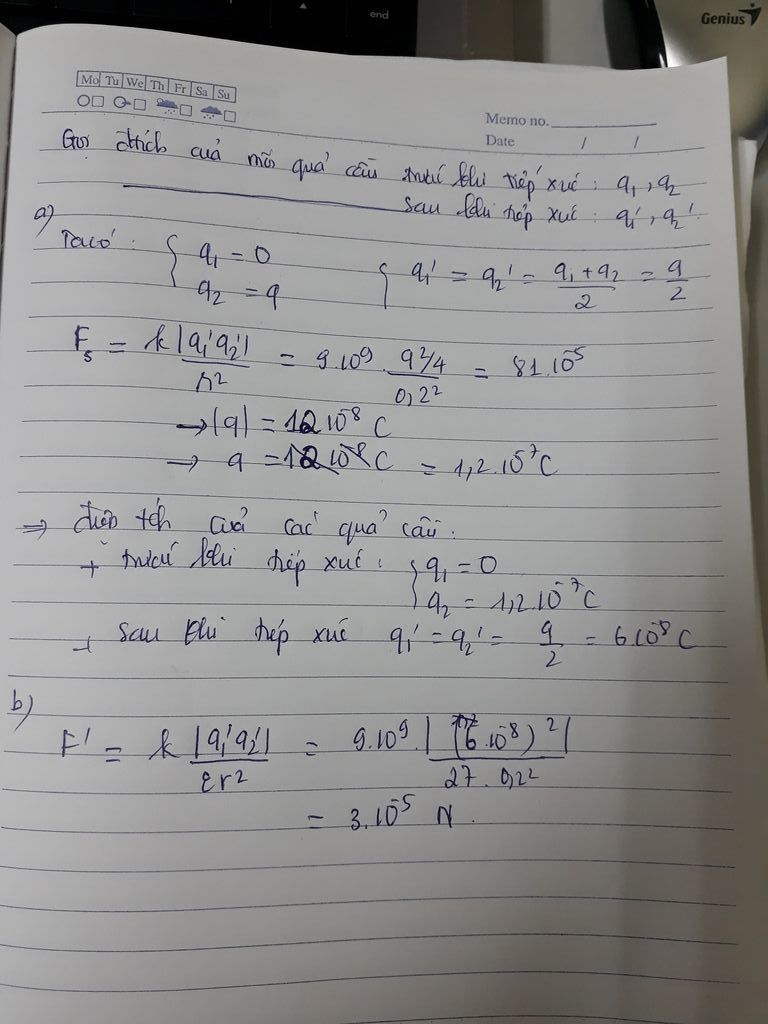 end
Genius
Mo Tu We Th Fr Sa Su
Memo no.
Date / /
Gọi đtích của mỗi quả cầu trước khi tiếp xúc : q₁, q₂
sau khi tiếp xúc : q₁', q₂'.
a)
Ta có : { q₁ = 0 { q₁' = q₂' = (q₁ + q₂)/2 = q/2
q₂ = q
F = k |q₁'q₂'|/r² = 9.10⁹. (q²/4)/0,2² = 81.10⁻⁵
→ |q| = 12 10⁻⁸ C
→ q = 12 10⁻⁸ C = 1,2.10⁻⁷ C
⇒ điện tích của các quả cầu.
+ trước khi tiếp xúc : { q₁ = 0
q₂ = 1,2.10⁻⁷ C
+ sau khi tiếp xúc q₁' = q₂' = q/2 = 6 10⁻⁸ C
b)
F' = k |q₁'q₂'|/εr² = 9.10⁹. |(6.10⁻⁸)²|/27.0,2²
= 3.10⁻⁵ N.